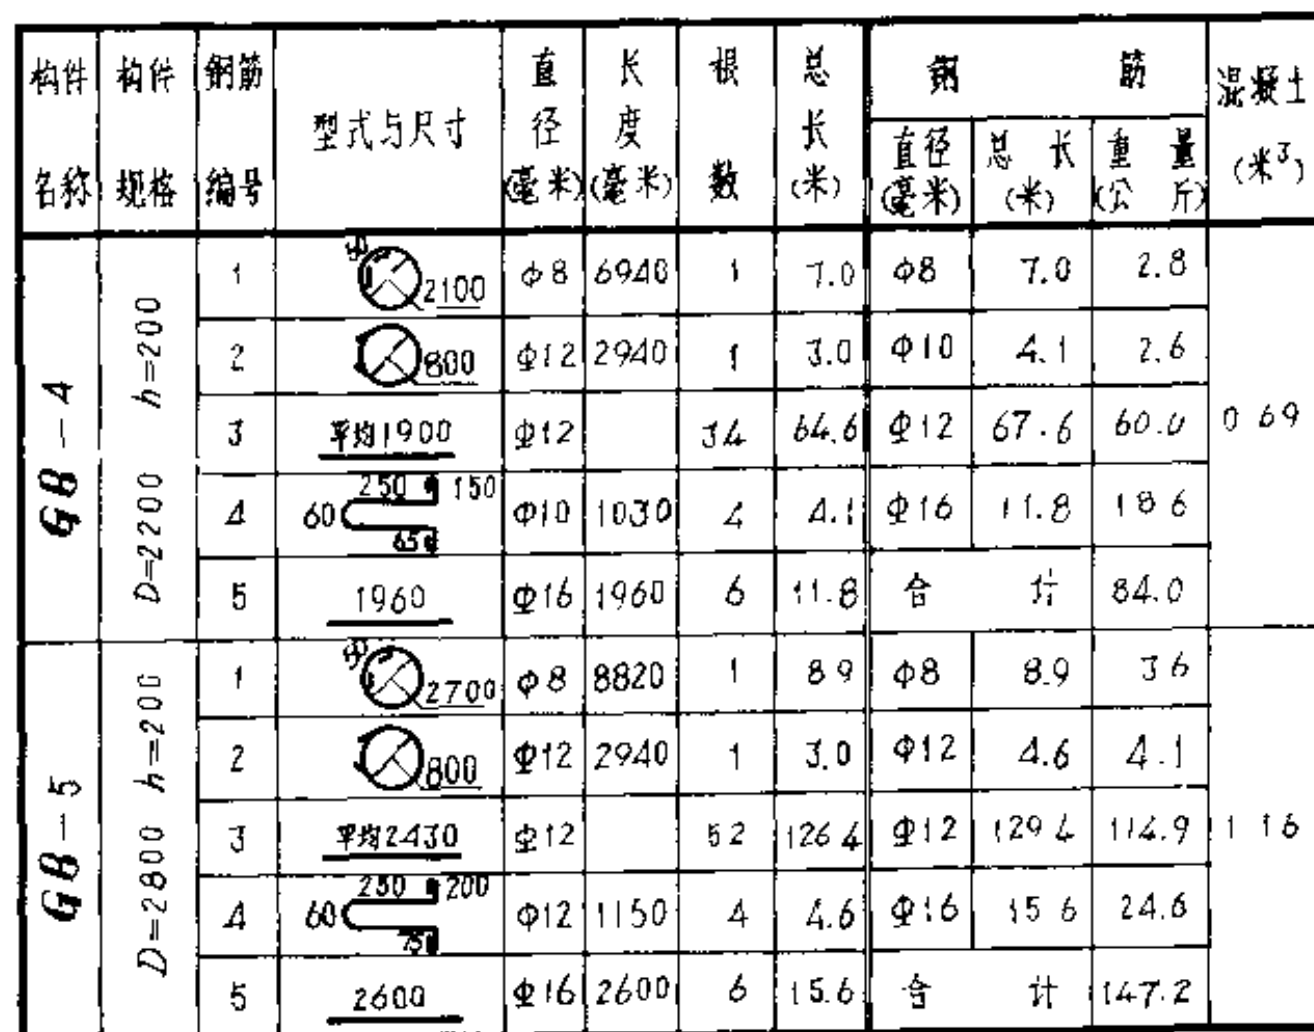 构件名称 构件规格 钢筋编号 型式与尺寸 直径(毫米) 长度(毫米) 根数 总长(米) 钢筋 混凝土(米³)
直径(毫米) 总长(米) 重量(公斤)
GB-4 D=2200 h=200
1 2100 Φ8 6940 1 7.0 Φ8 7.0 2.8
2 800 Φ12 2940 1 3.0 Φ10 4.1 2.6
3 平均1900 Φ12 34 64.6 Φ12 67.6 60.0 0 69
4 250 150 60 65 Φ10 1030 4 4.1 Φ16 11.8 18 6
5 1960 Φ16 1960 6 11.8 合计 84.0
GB-5 D=2800 h=200
1 2700 Φ8 8820 1 8 9 Φ8 8.9 3 6
2 800 Φ12 2940 1 3.0 Φ12 4.6 4.1
3 平均2430 Φ12 52 126 4 Φ12 129 4 114.9 1 16
4 250 200 60 75 Φ12 1150 4 4.6 Φ16 15 6 24.6
5 2600 Φ16 2600 6 15.6 合计 147.2